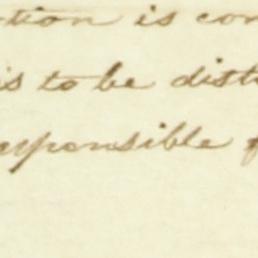 tion is con
is to be dist
sponsible f